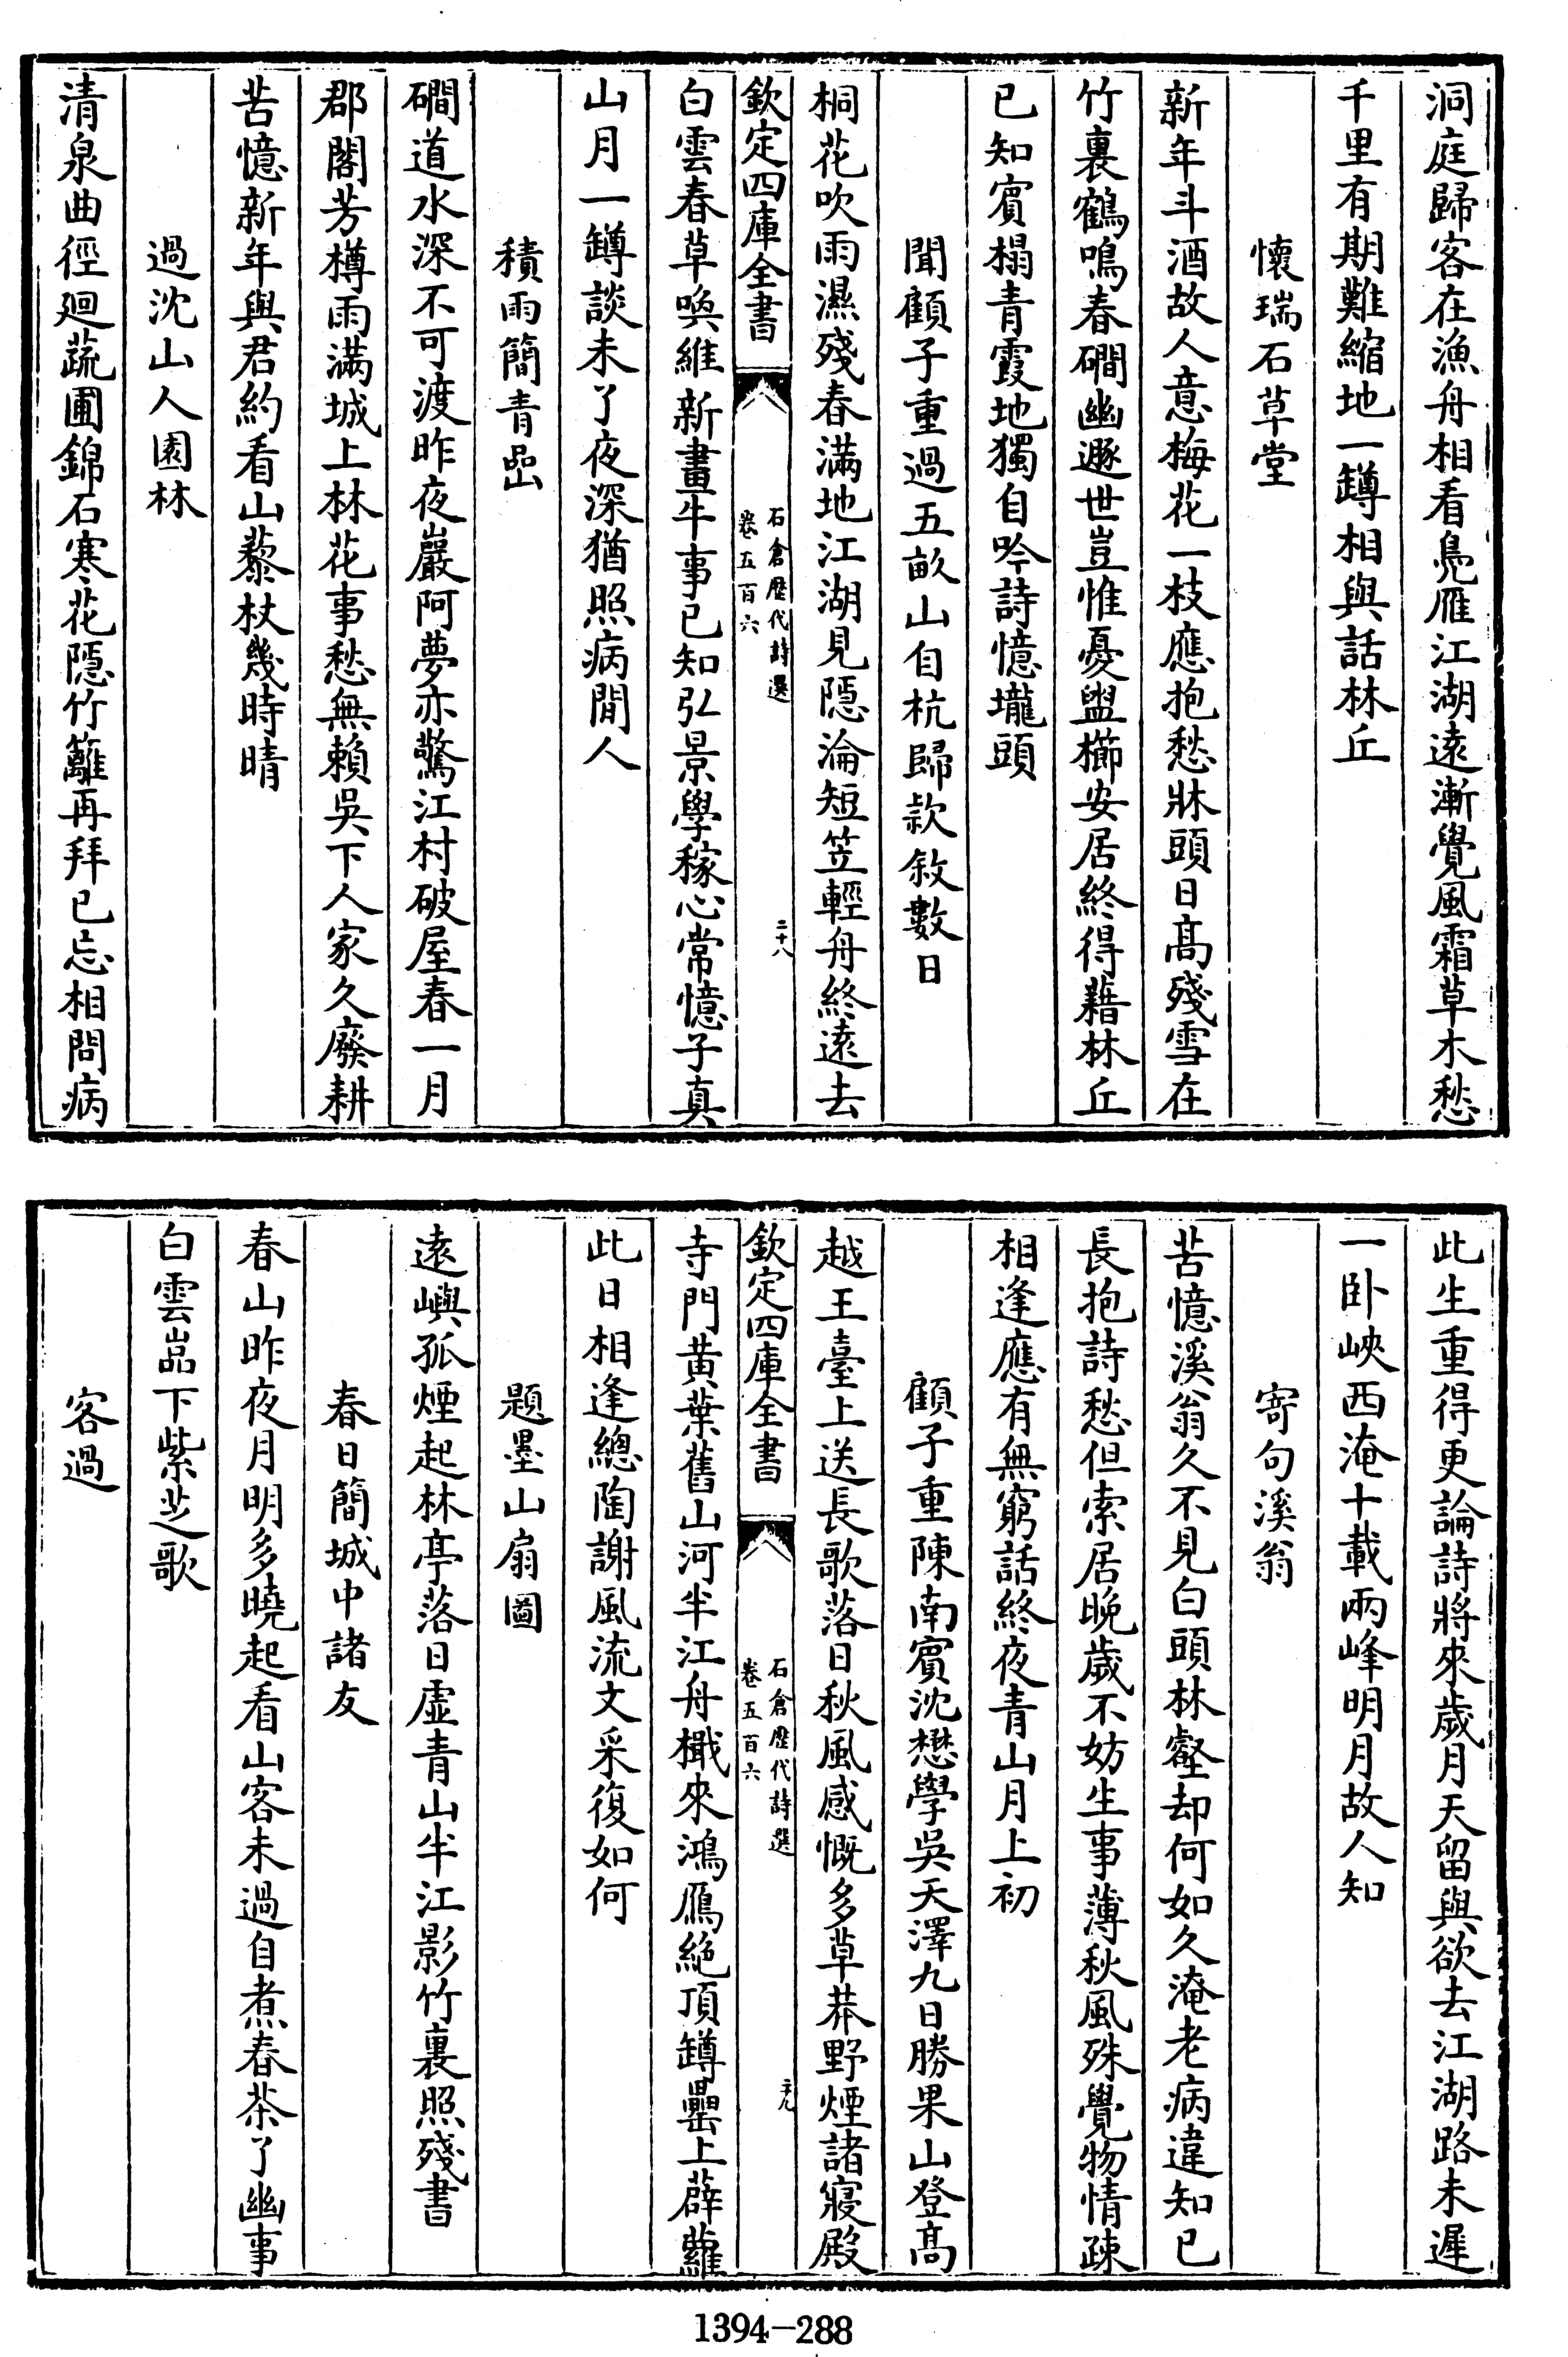 洞庭歸客在漁舟相看鳧雁江湖遠漸覺風霜草木愁
千里有期難縮地一罇相與話林丘
懷瑞石草堂
新年斗酒故人意梅花一枝應抱愁牀頭日髙殘雪在
竹裏鶴鳴春磵幽遯世豈惟憂盥櫛安居終得藉林丘
已知賓榻青霞地獨自吟詩憶壠頭
聞顧子重過五畝山自杭歸欵敘數日
桐花吹雨濕殘春滿地江湖見隱淪短笠輕舟終遠去
欽定四庫全書
石倉歷代詩選
卷五百六
二十八
白雲春草喚維新畫牛事已知弘景學稼心常憶子真
山月一罇談未了夜深猶照病閒人
積雨簡青嵒
磵道水深不可渡昨夜巖阿夢亦驚江村破屋春一月
郡閣芳樽雨滿城上林花事愁無賴吳下人家久廢耕
苦憶新年與君約看山藜杖幾時晴
過沈山人園林
清泉曲徑廻蔬圃錦石寒花隱竹籬再拜已忘相問病
此生重得更論詩將來歲月天留與欲去江湖路未遲
一卧峽西淹十載兩峰明月故人知
寄句溪翁
苦憶溪翁久不見白頭林壑却何如久淹老病違知已
長抱詩愁但索居晚歲不妨生事薄秋風殊覺物情疎
相逢應有無窮話終夜青山月上初
顧子重陳南賓沈懋學吳天澤九日勝果山登髙
越王臺上送長歌落日秋風感慨多草莽野煙諸寢殿
欽定四庫全書
石倉歷代詩選
卷五百六
二十九
寺門黄葉舊山河半江舟檝來鴻鴈絶頂罇罍上薜蘿
此日相逢總陶謝風流文采復如何
題墨山扇圖
遠嶼孤煙起林亭落日虛青山半江影竹裏照殘書
春日簡城中諸友
春山昨夜月明多曉起看山客未過自煮春茶了幽事
白雲嵓下紫芝歌
客過
1394-288